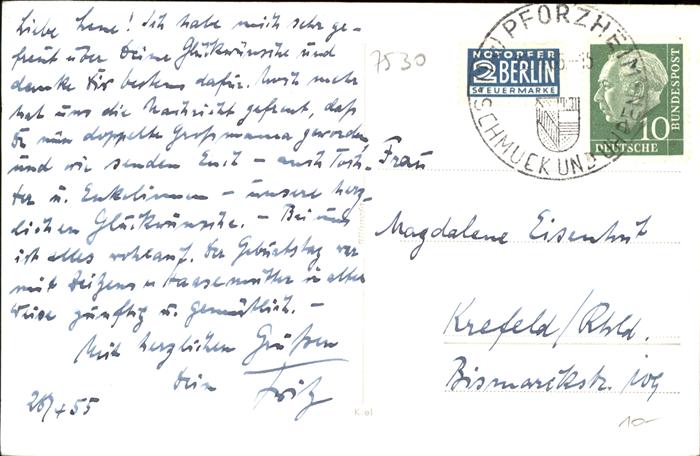 Liebe Lene! Ich habe mich sehr ge-
freut über Deine Glückwünsche und
danke Dir bestens dafür. Noch mehr
hat uns die Nachricht gefreut, daß
Du nun doppelte Großmama geworden
und wir senden Euch - auch Toch-
ter u. Enkelinnen - unsere herz-
lichen Glückwünsche. - Bei uns
ist alles wohlauf. Der Geburtstag war
mit in alter
Weise zünftig u. gemütlich. -
Mit herzlichen Grüßen
Dein Fritz
26/4 55
7530
NOTOPFER
2 BERLIN
STEUERMARKE
PFORZHEIM
SCHMUCK UND
10
DEUTSCHE
BUNDESPOST
Frau
Magdalene Eisenhut
Krefeld/Rhld.
Bismarckstr. 109
10-